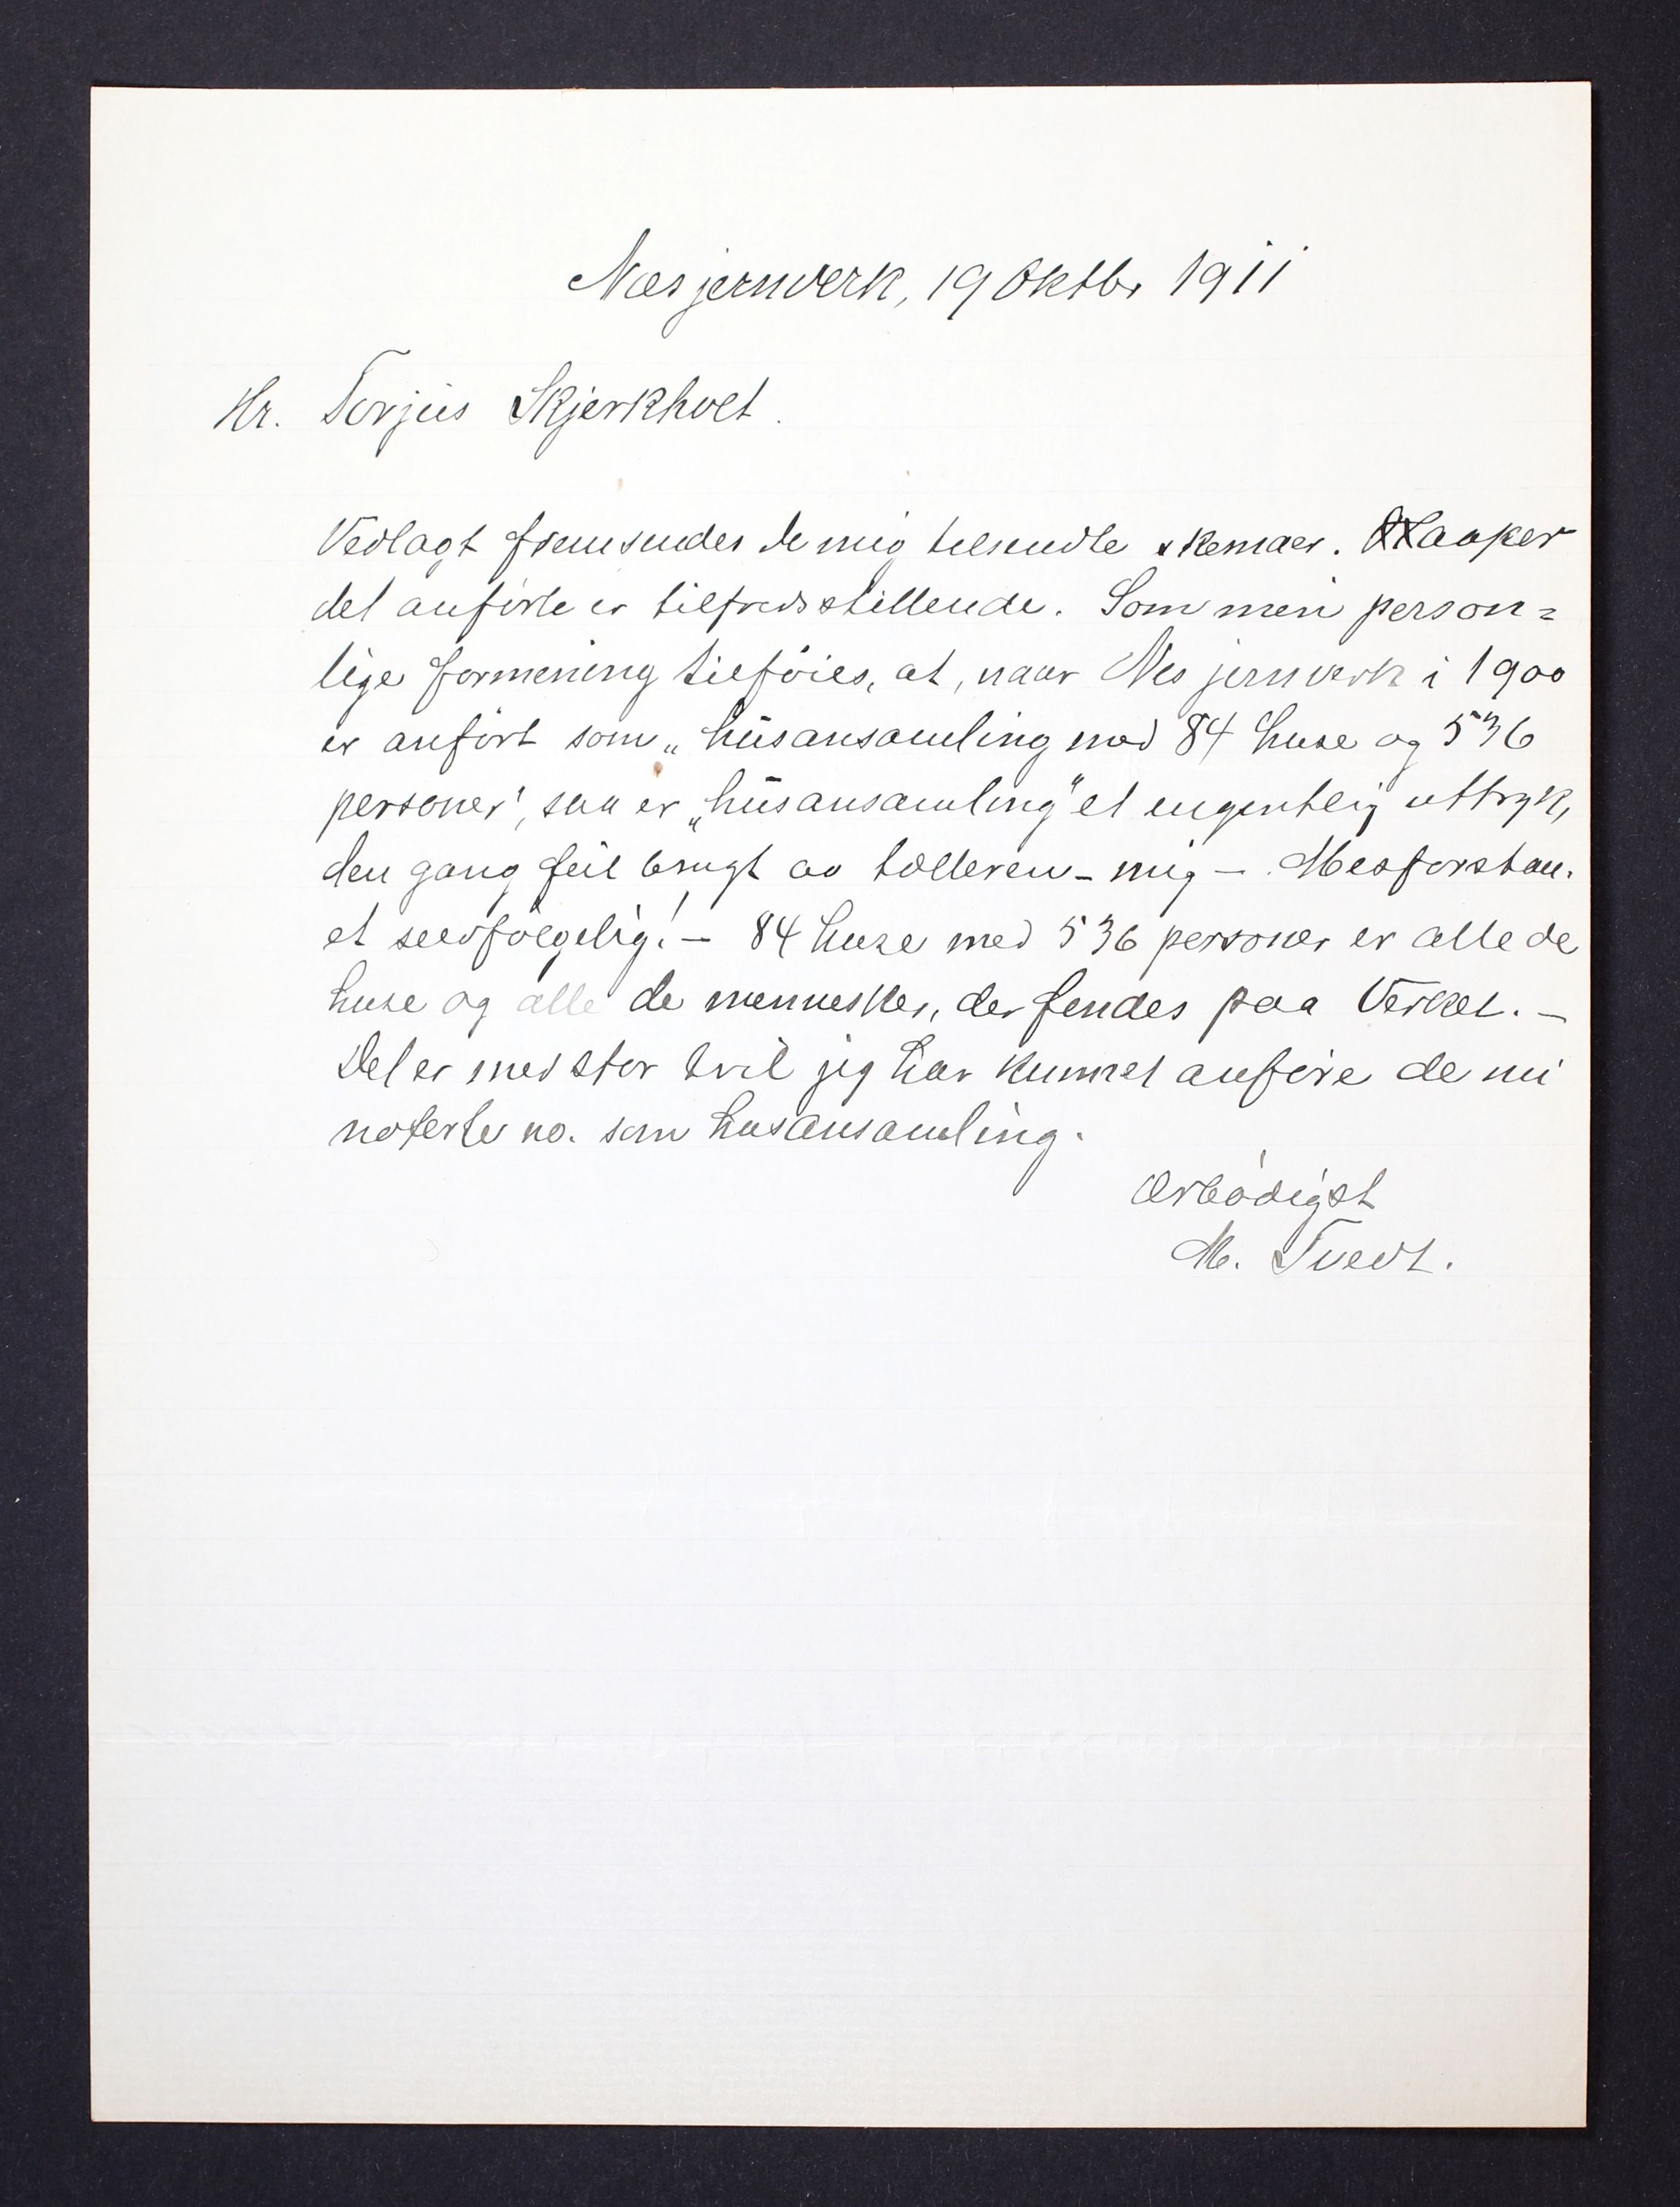 Næs jernverk, 19 Oktbr 1911
Hr. Torjus Skjerkholt.
Vedlagt fremsendes de mig tilsendte skemaer. Haaper
det anförte er tilfredsstillende. Som min person=
lige formening tilföies, at, naar Nes jernverk i 1900
er anfört som „husansamling med 84 huse og 536
personer", saa er „husansamling" et uegentlig uttryk,
den gang feil brugt av tælleren - mig -. Misforstaa-
et selvfölgelig! - 84 huse med 536 personer er alle de
huse og alle de mennesker, der findes paa Verket. -
Det er med stor tvil jeg har kunnet anföre de nu
noterte no. som husansamling.
Ærbödigst
M. Tvedt.